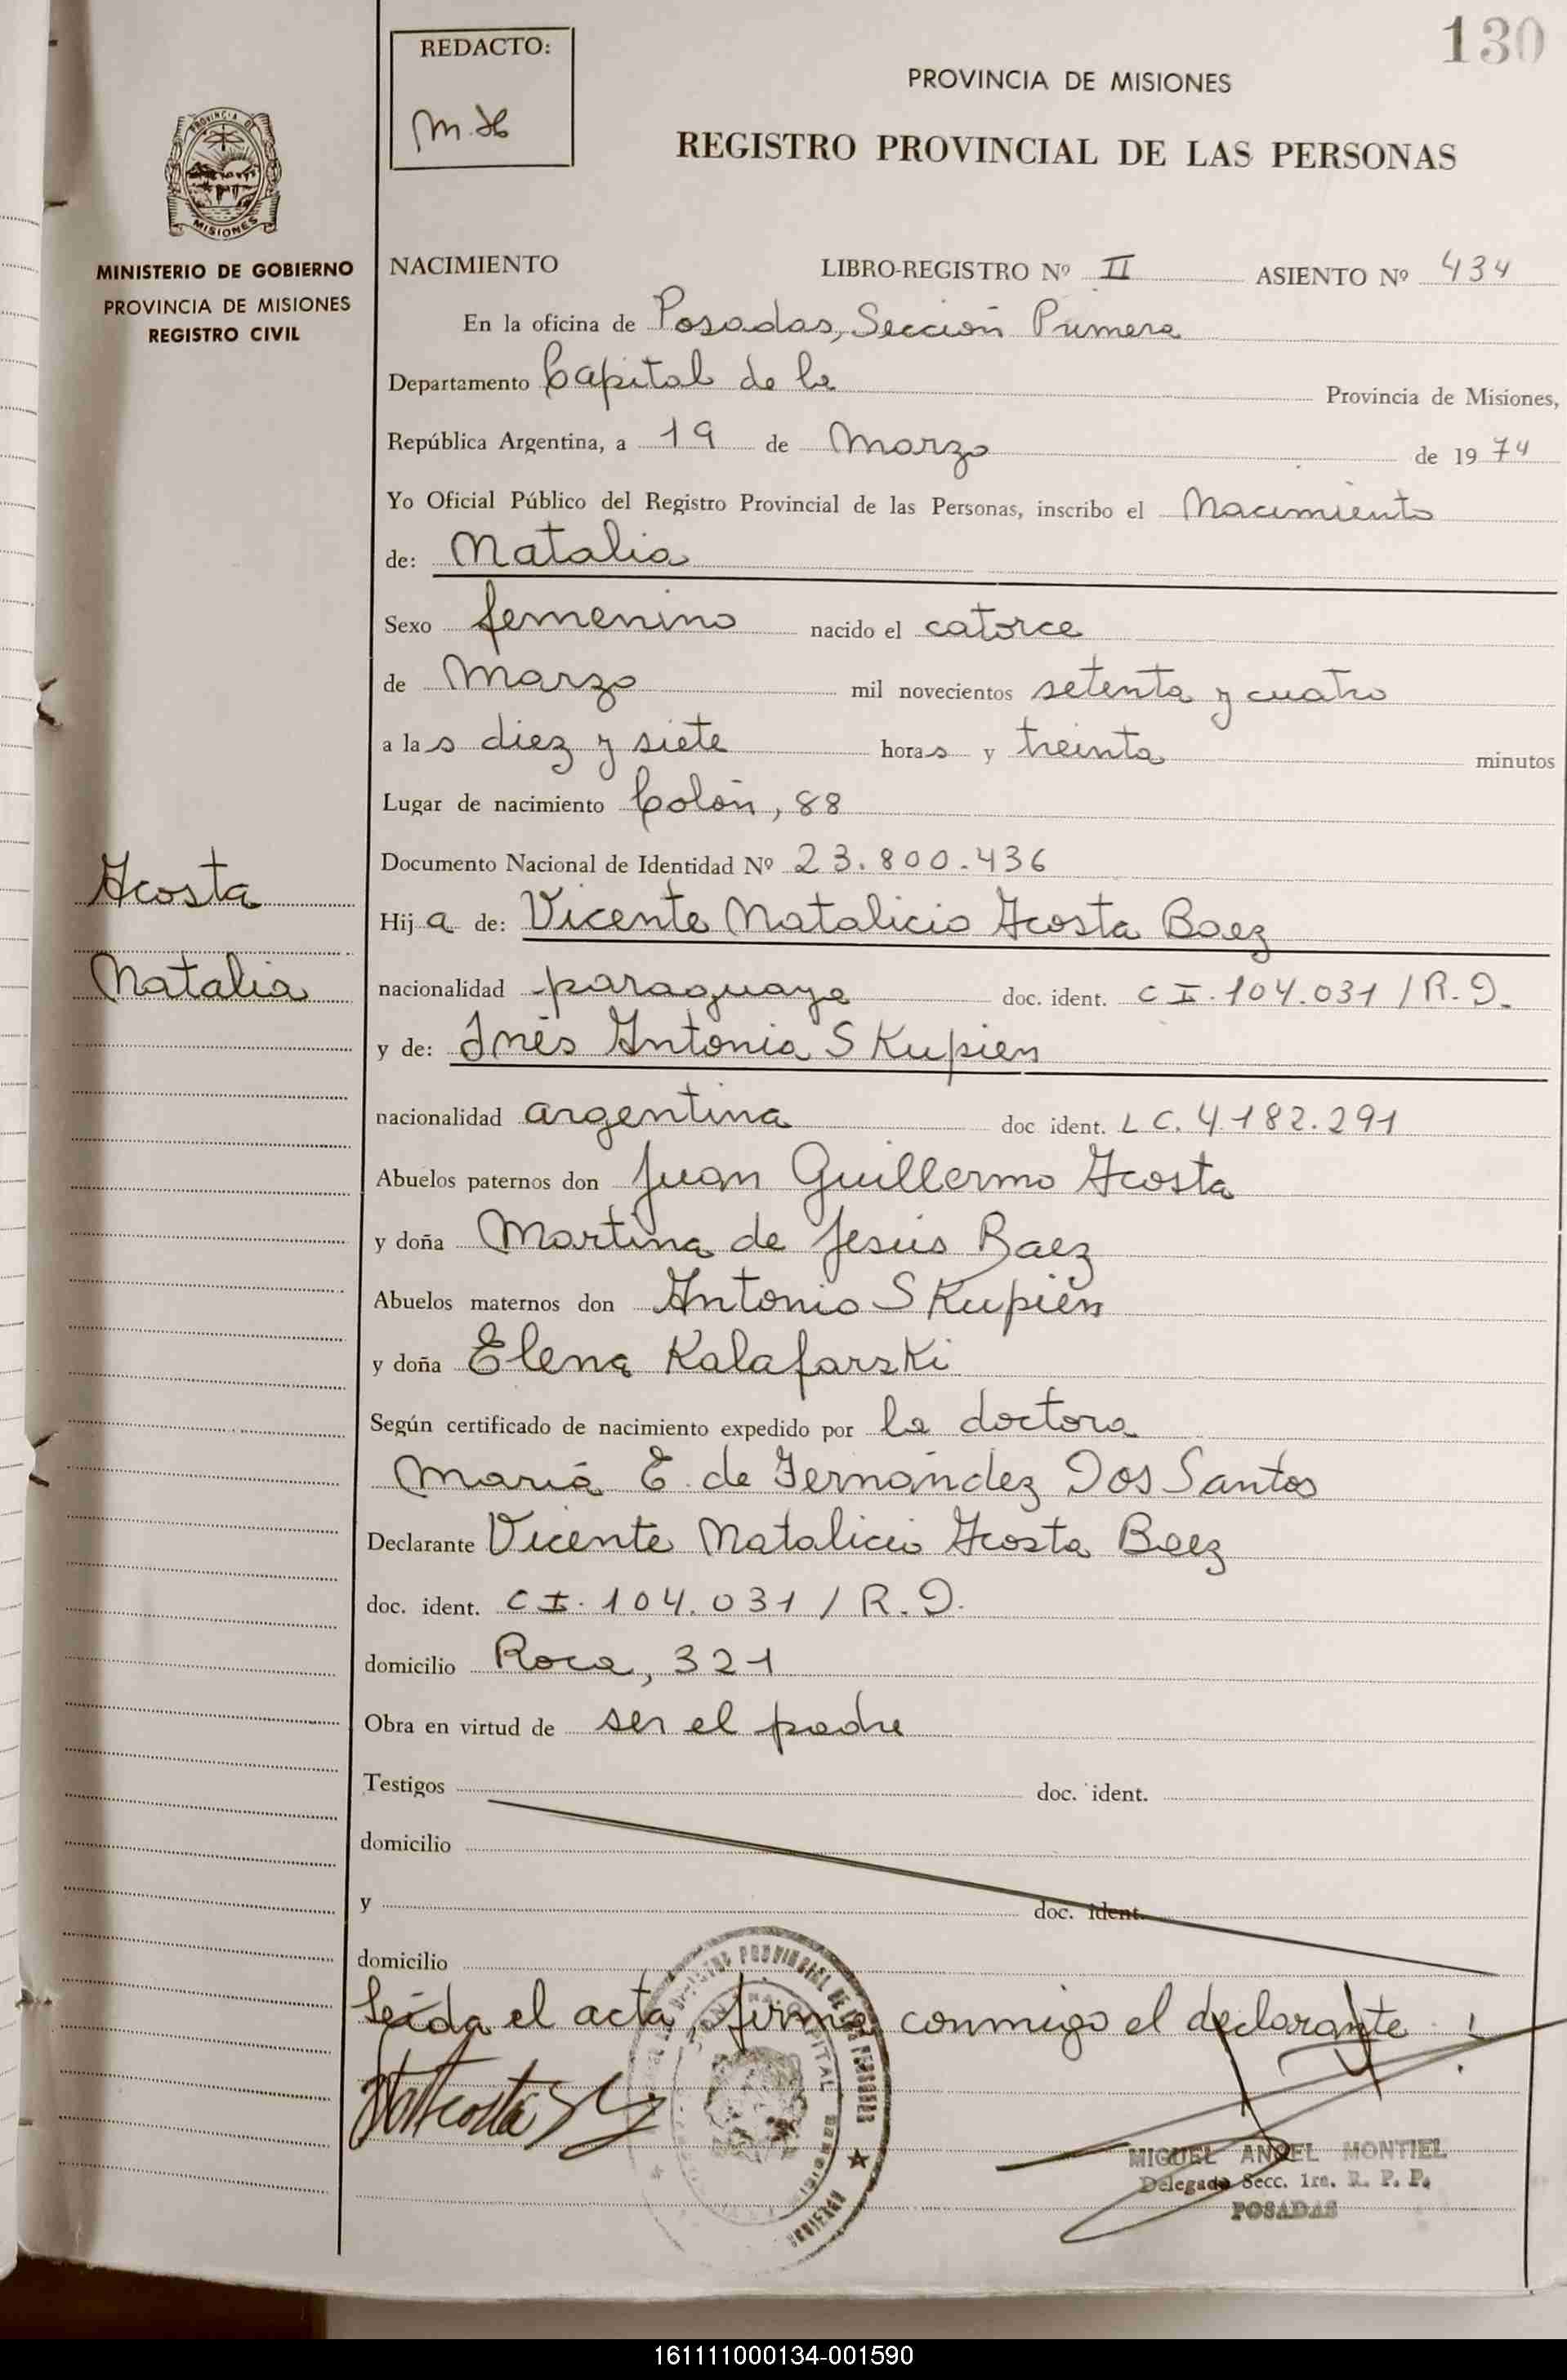 130
REDACTO:
M.H
PROVINCIA DE MISIONES
REGISTRO PROVINCIAL DE LAS PERSONAS
PROVINCIA DE
MISIONES
MINISTERIO DE GOBIERNO
PROVINCIA DE MISIONES
REGISTRO CIVIL
NACIMIENTO LIBRO-REGISTRO Nº II ASIENTO Nº 434
En la oficina de Posadas, Sección Primera
Departamento Capital de la Provincia de Misiones,
República Argentina, a 19 de Marzo de 1974
Yo Oficial Público del Registro Provincial de las Personas, inscribo el Nacimiento
de: Natalia
Sexo femenino nacido el catorce
de Marzo mil novecientos setenta y cuatro
a las diez y siete horas y treinta minutos
Lugar de nacimiento Colón, 88
Documento Nacional de Identidad Nº 23.800.436
Acosta
Hija de: Vicente Natalicio Acosta Baez
Natalia
nacionalidad paraguaya doc. ident. C I. 104.031 / R.D.
y de: Inés Antonia SKupien
nacionalidad argentina doc ident. L C. 4.182.291
Abuelos paternos don Juan Guillermo Acosta
y doña Martina de Jesús Baez
Abuelos maternos don Antonio SKupien
y doña Elena Kalafarski
Según certificado de nacimiento expedido por la doctora
María E. de Fernández Dos Santos
Declarante Vicente Natalicio Acosta Baez
doc. ident. C I. 104.031 / R.D.
domicilio Roca, 321
Obra en virtud de ser el padre
Testigos doc. ident.
domicilio
y doc. ident.
domicilio
Leída el acta, firma conmigo el declarante.
PROVINCIAL DE LAS PERSONAS
CAPITAL
MIGUEL ANGEL MONTIEL
Delegado Secc. 1ra. R. P. P.
POSADAS
161111000134-001590